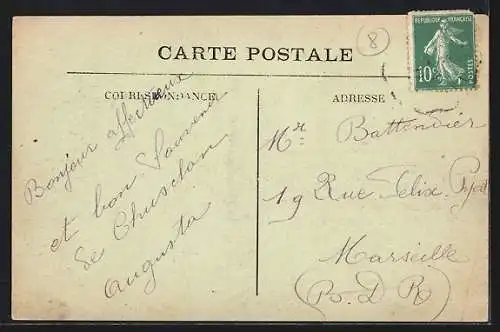 8
REPUBLIQUE FRANÇAISE
10c
POSTES
CARTE POSTALE
CORRESPONDANCE
Bonjour affectueux
et bon Souvenir
de Chusclan
Augusta
ADRESSE
Mr Battendier
19 Rue Felix
Marseille
(B. D R)